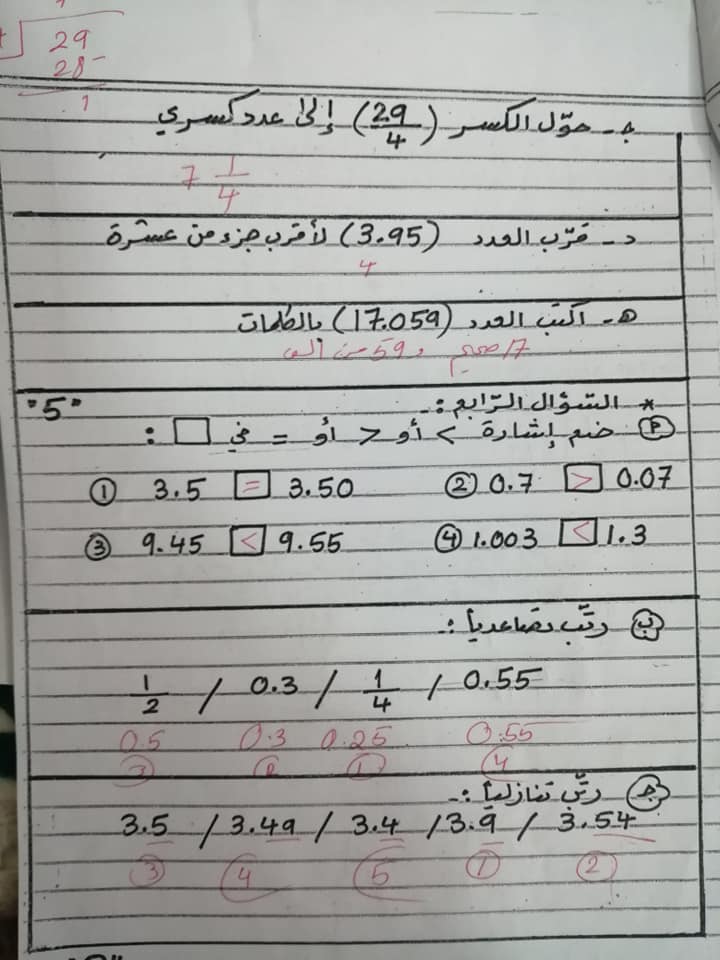 29
28 -
1
جـ - حوّل الكسر (29/4) إلى عدد كسري
7 1/4
د - قرّب العدد (3.95) لأقرب جزء من عشرة
4
هـ - اكتب العدد (17.059) بالكلمات
17 صحيح و 59 من ألف
* السؤال الرّابع :- "5"
أ ضع إشارة < أو > أو = في □ :
① 3.5 = 3.50 ② 0.7 > 0.07
③ 9.45 < 9.55 ④ 1.003 < 1.3
ب رتّب تصاعدياً :-
1/2 / 0.3 / 1/4 / 0.55
0.5 0.3 0.25 0.55
③ ② ① ④
جـ رتّب تنازلياً :-
3.5 / 3.49 / 3.4 / 3.9 / 3.54
③ ④ ⑤ ① ②